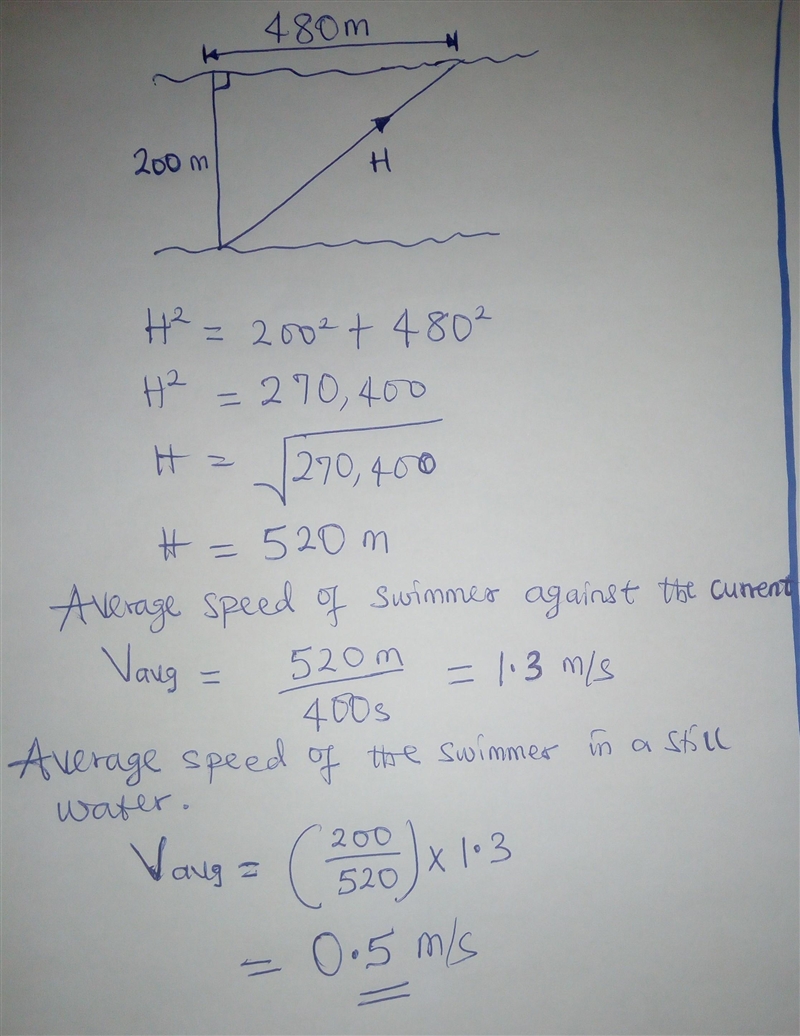 480m
200m
H
H² = 200² + 480²
H² = 270,400
H = √270,400
H = 520 m
Average speed of swimmer against the current
Vavg = 520m/400s = 1.3 m/s
Average speed of the swimmer in a still
water.
Vavg = (200/520) × 1.3
= 0.5 m/s